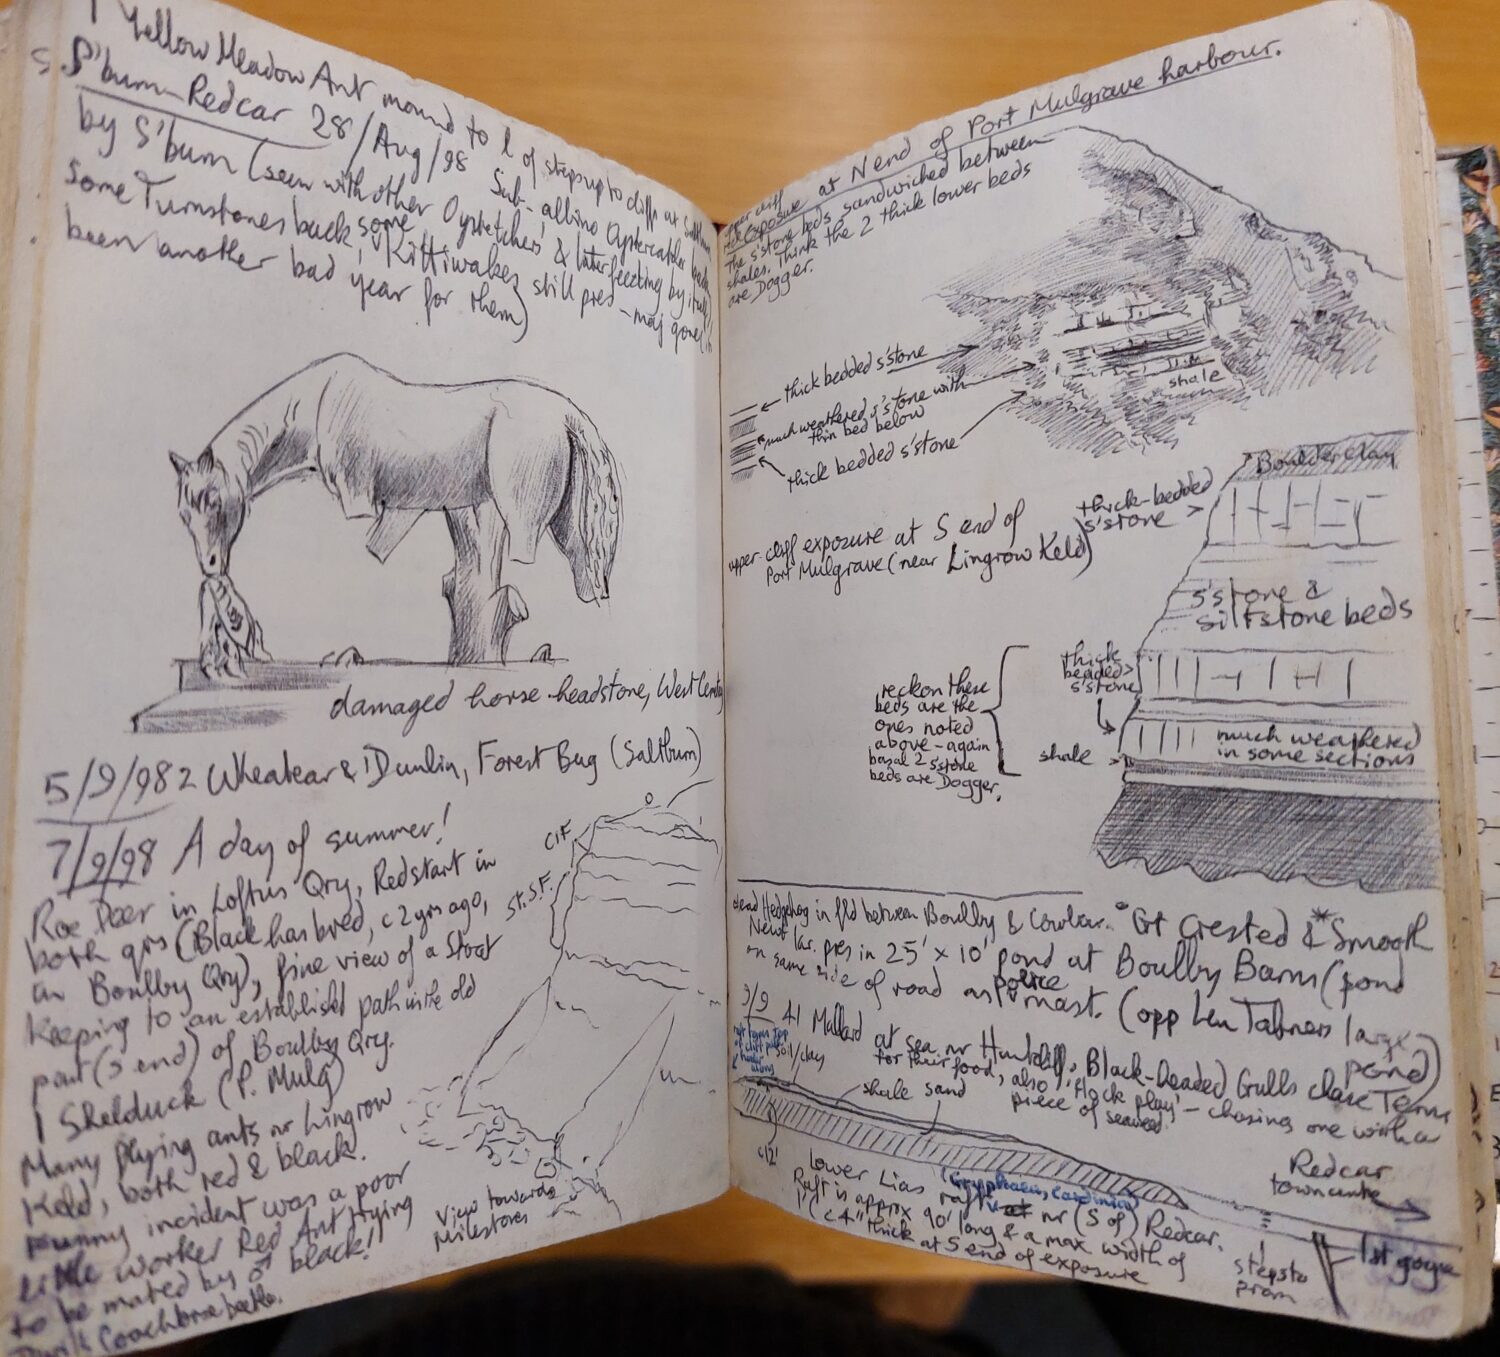 Yellow Meadow Ant mound to l of steps up to cliffs at Saltburn
S'burn-Redcar 28/Aug/98 Sub-albino Oystercatcher
by S'burn (seen with other Oystctchers & later feeding by itself)
some Turnstones back, some Kittiwakes still pres - maj gone
been another bad year for them)
damaged horse headstone, West
5/9/98 2 Wheatear & 1 Dunlin, Forest Bug (Saltburn)
7/9/98 A day of summer!
Roe Deer in Loftus Qry, Redstart in
both qrs (Black has bred, c 2 yrs ago,
in Boulby Qry), fine view of a Stoat
keeping to an establishd path in the old
part (S end) of Boulby Qry.
1 Shelduck (P. Mulg)
Many flying ants nr Lingrow
Keld, both red & black.
Funny incident was a poor
little worker Red Ant trying
to be mated by ♂ black!!
Devil's Coachhorse beetle.
CIF
St.S.F.
View towards
Milestones
upper cliff
exposure at N end of Port Mulgrave harbour.
The s'stone beds sandwiched between
shales. Think the 2 thick lower beds
are Dogger.
thick bedded s'stone
much weathered s'stone with
thin bed below
thick bedded s'stone
shale
upper-cliff exposure at S end of
Port Mulgrave (near Lingrow Keld)
Boulder Clay
thick-bedded
s'stone
s'stone &
siltstone beds
thick
bedded
s'stone
much weathered
in some sections
shale
reckon these
beds are the
ones noted
above - again
basal 2 s'stone
beds are Dogger.
dead Hedgehog in fld between Boulby & Cowbar. Gt Crested & *Smooth
Newt lar. pres in 25' x 10' pond at Boulby Barns (pond
on same side of road as police mast. (opp Len Tabners large
pond)
9/9 41 Mallard at sea nr Huntcliff, Black-headed Gulls chase Terns
for their food, also 'flock play' - chasing one with a
piece of seaweed.
top
of cliff path
along
soil/clay
shale sand
c12'
Lower Lias raft (Gryphaea, Cardinia) nr (S of) Redcar.
Raft is approx 90' long & a max width of
1' (c4" thick at S end of exposure
Redcar
town centre
steps to
prom
1st groyne